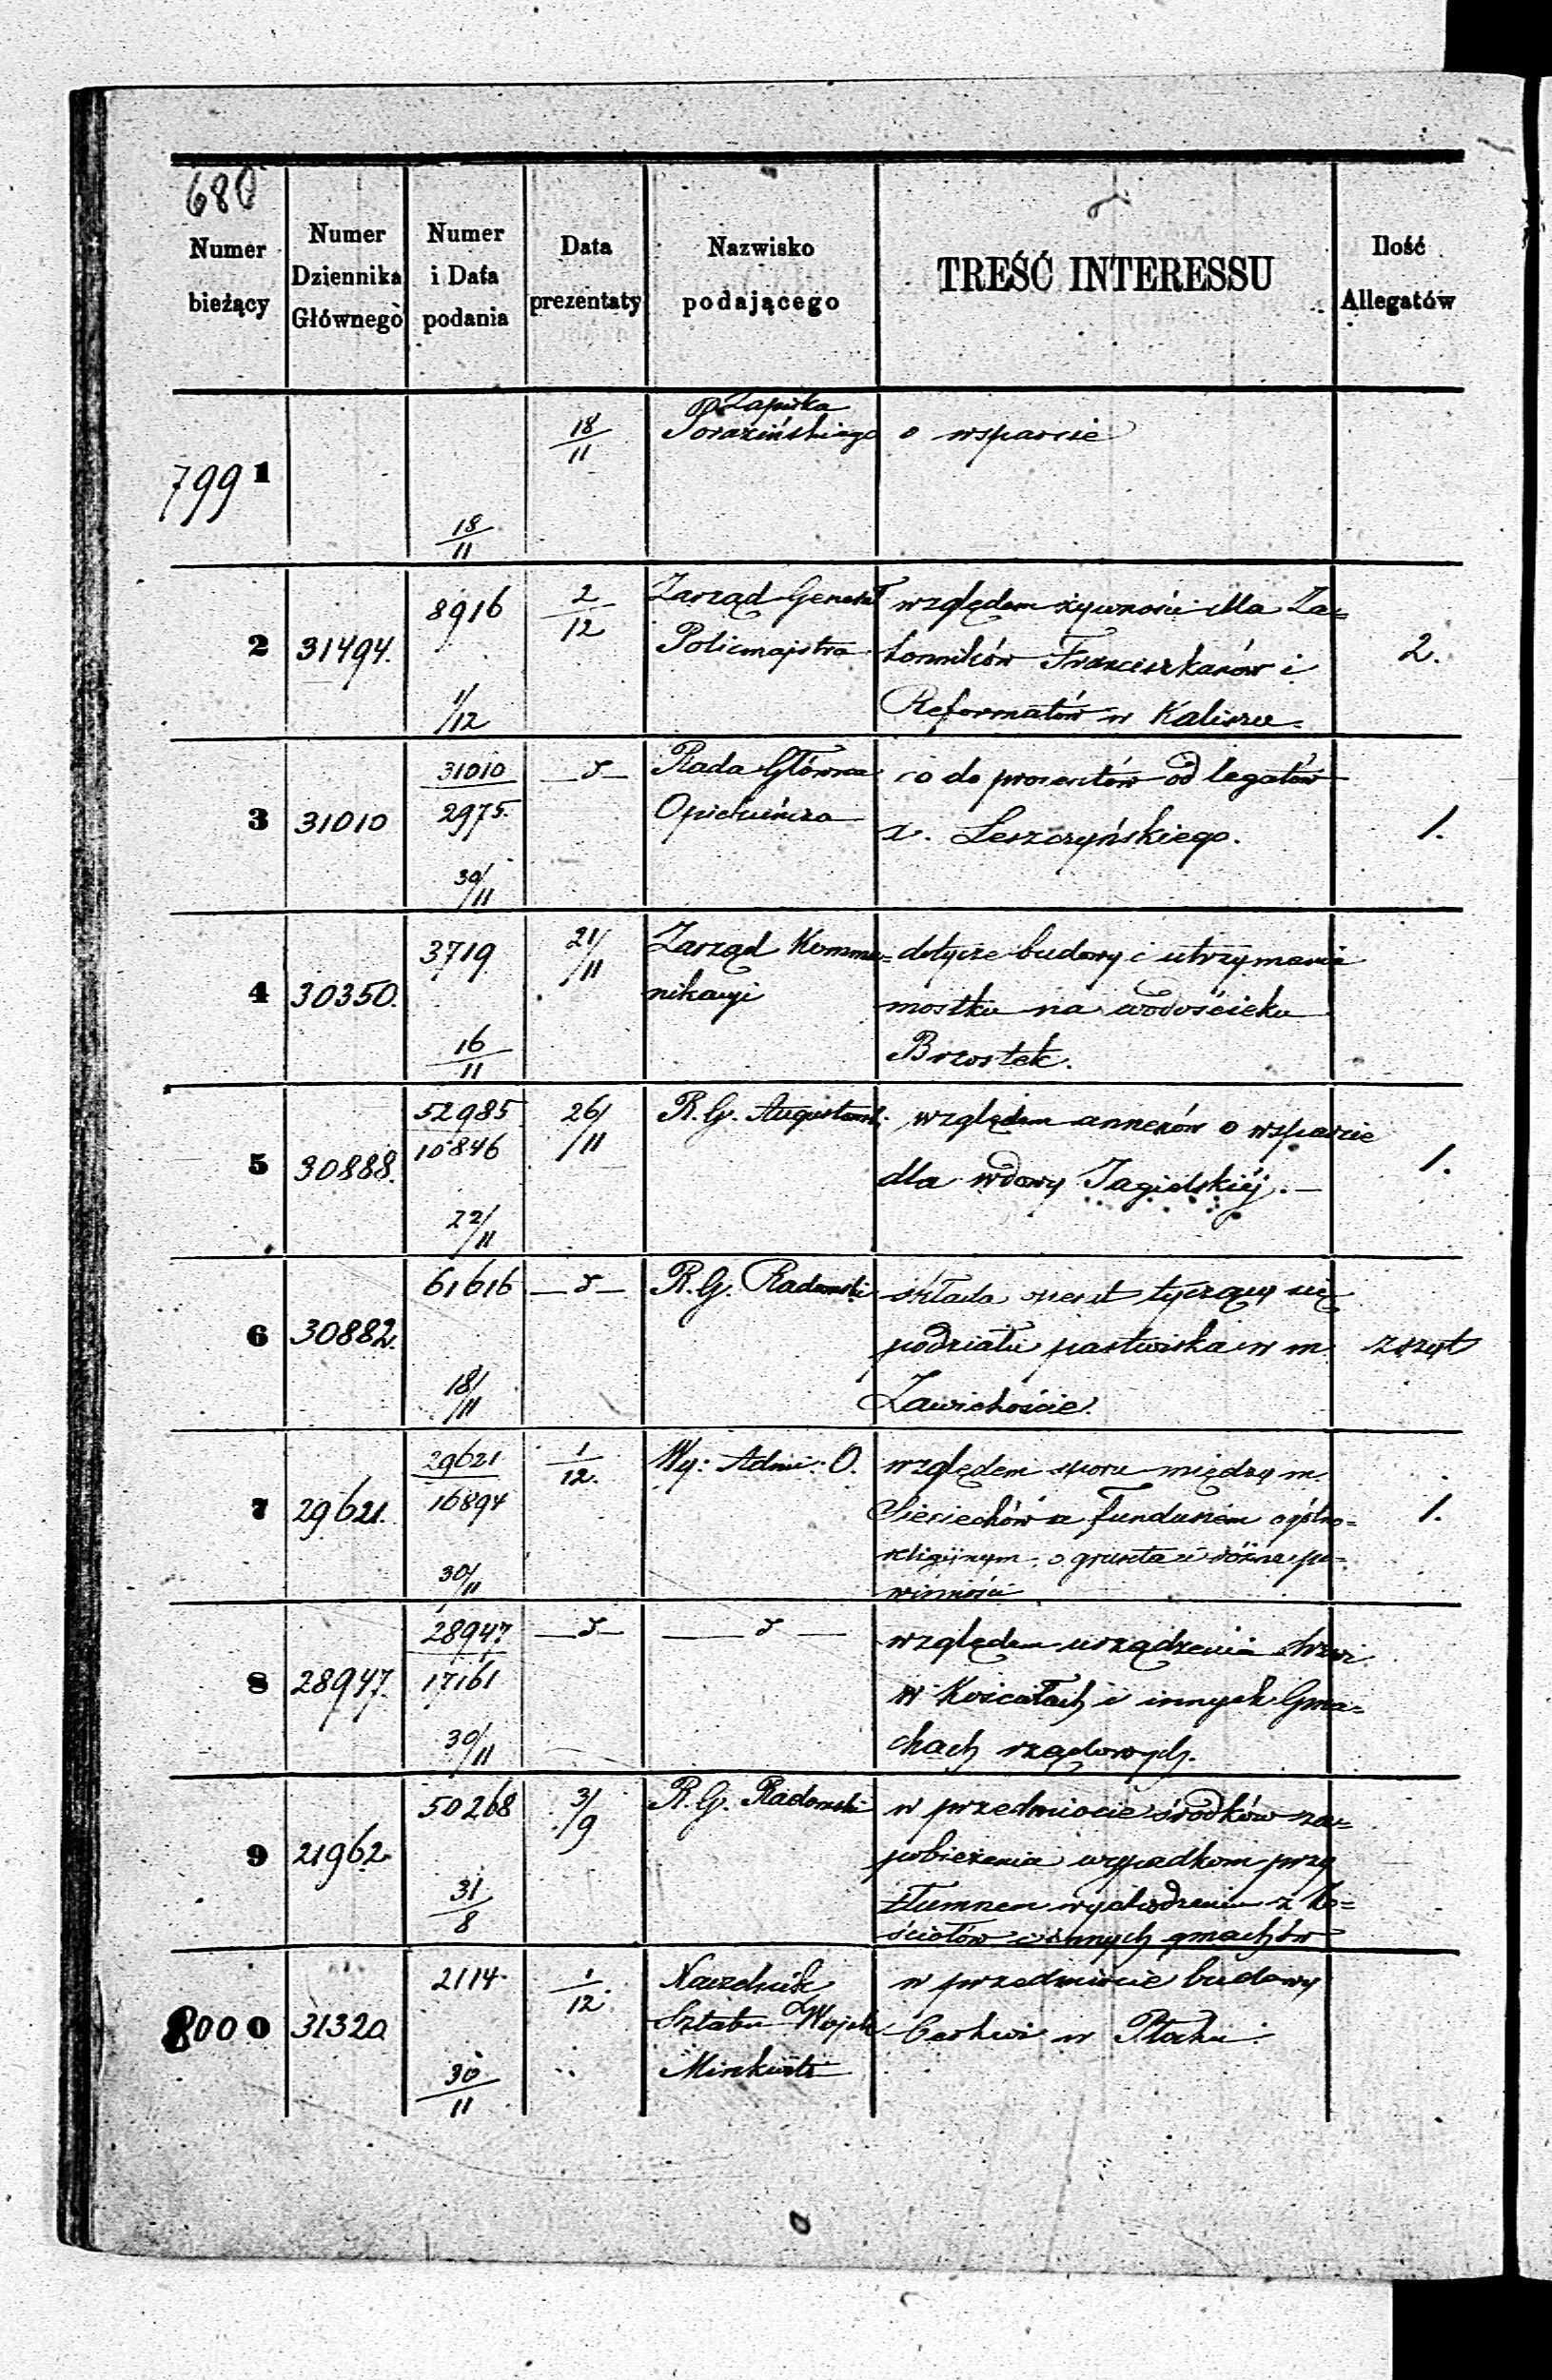 680
Numer bieżący
Numer Dziennika Głównego
Numer i Data podania
Data prezentaty
Nazwisko podającego
TREŚĆ INTERESSU
Ilość Allegatów
7991
18/11
18/11
Zapiska
Porazińskiego
o wsparcie
2
31494.
8916
1/12
2/12
Zarząd Generał
Policmajstra
względem żywności dla Za=
konników Franciszkanów i
Reformatów w Kaliszu.
2.
3
31010
31010
2975.
30/11
—d—
Rada Główna
Opiekuńcza
co do procentów od legatów
x. Leszczyńskiego.
1.
4
30350.
3719
16/11
21/11
Zarząd Kommu=
nikacyi
dotycze budowy i utrzymania
mostku na wodościeku
Brzostek.
5
30888.
52985
10846
22/11
26/11
R. G. Augustowsk.
względem annexów o wsparcie
dla wdowy Jagielskiéj.—
1.
6
30882.
61616
18/11
—d—
R. G. Radomski
składa operat tyczący się
podziału pastwiska w m
Zawichoście.
zszyt
7
29621.
29621
16894
30/11
1/12.
Wy: Admi: O.
względem sporu między m.
Sieciechów a funduszem ogólno=
religijnym, o grunta i różne po=
winności
1.
8
28947.
28947.
17161
30/11
—d—
—d—
względem urządzenia drzwi
w Kościołach i innych Gma=
chach rządowych.
9
21962
50268
31/8
3/9
R. G. Radomski
w przedmiocie środków za=
pobieżenia wypadkom przy
tłumnem wychodzeniu z Ko=
ściołów i innych gmachów
8000
31320
2114
30/11
1/12.
Naczelnik
Sztabu Wojsk
Minkwitz
w przedmiocie budowy
Cerkwi w Płocku.